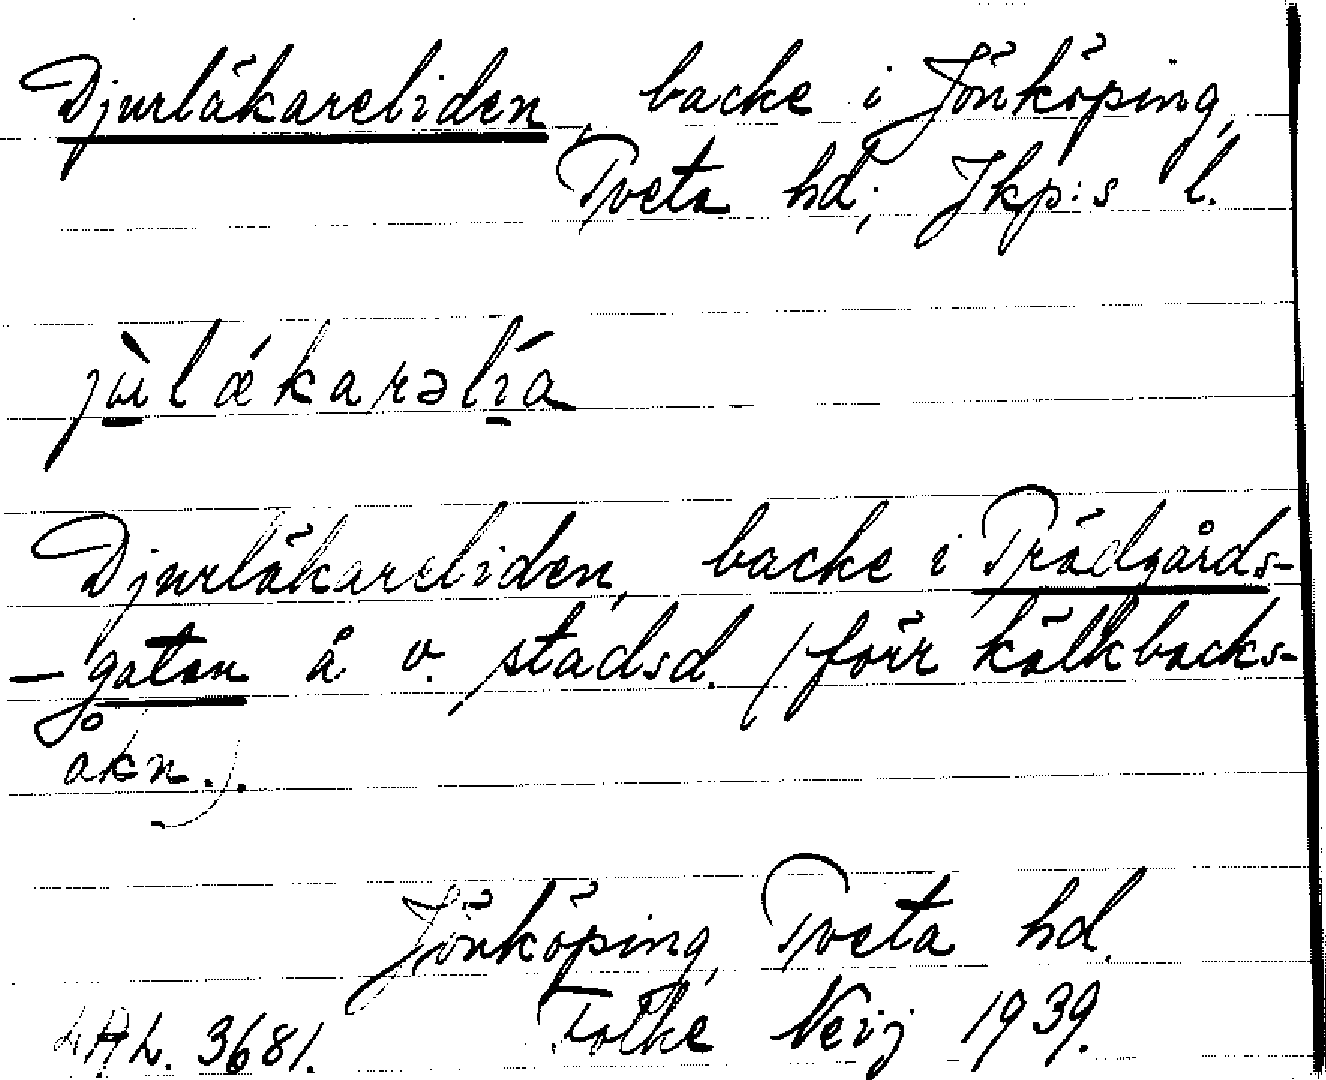 Djurläkareliden, backe i Jönköping,
Tveta hd, Jkp:s l.
jùlǽkarəlía
Djurläkareliden, backe i Trädgårds-
-gatan å v. stadsd. (förr kälkbacks-
åkn.).
Jönköping, Tveta hd.
LAL. 3681. Folke Neij 1939.